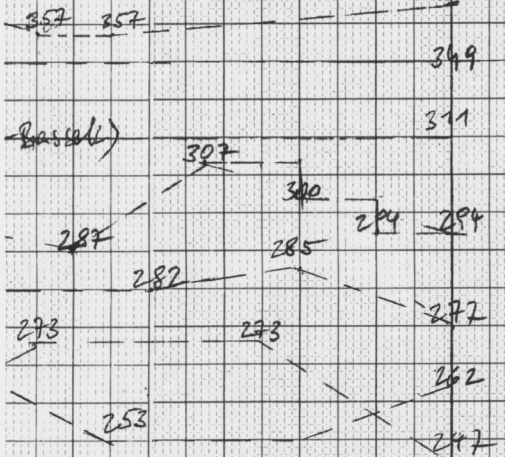 357 357
349
311
307
300
294 294
287
285
282
277
273 273
262
253
247